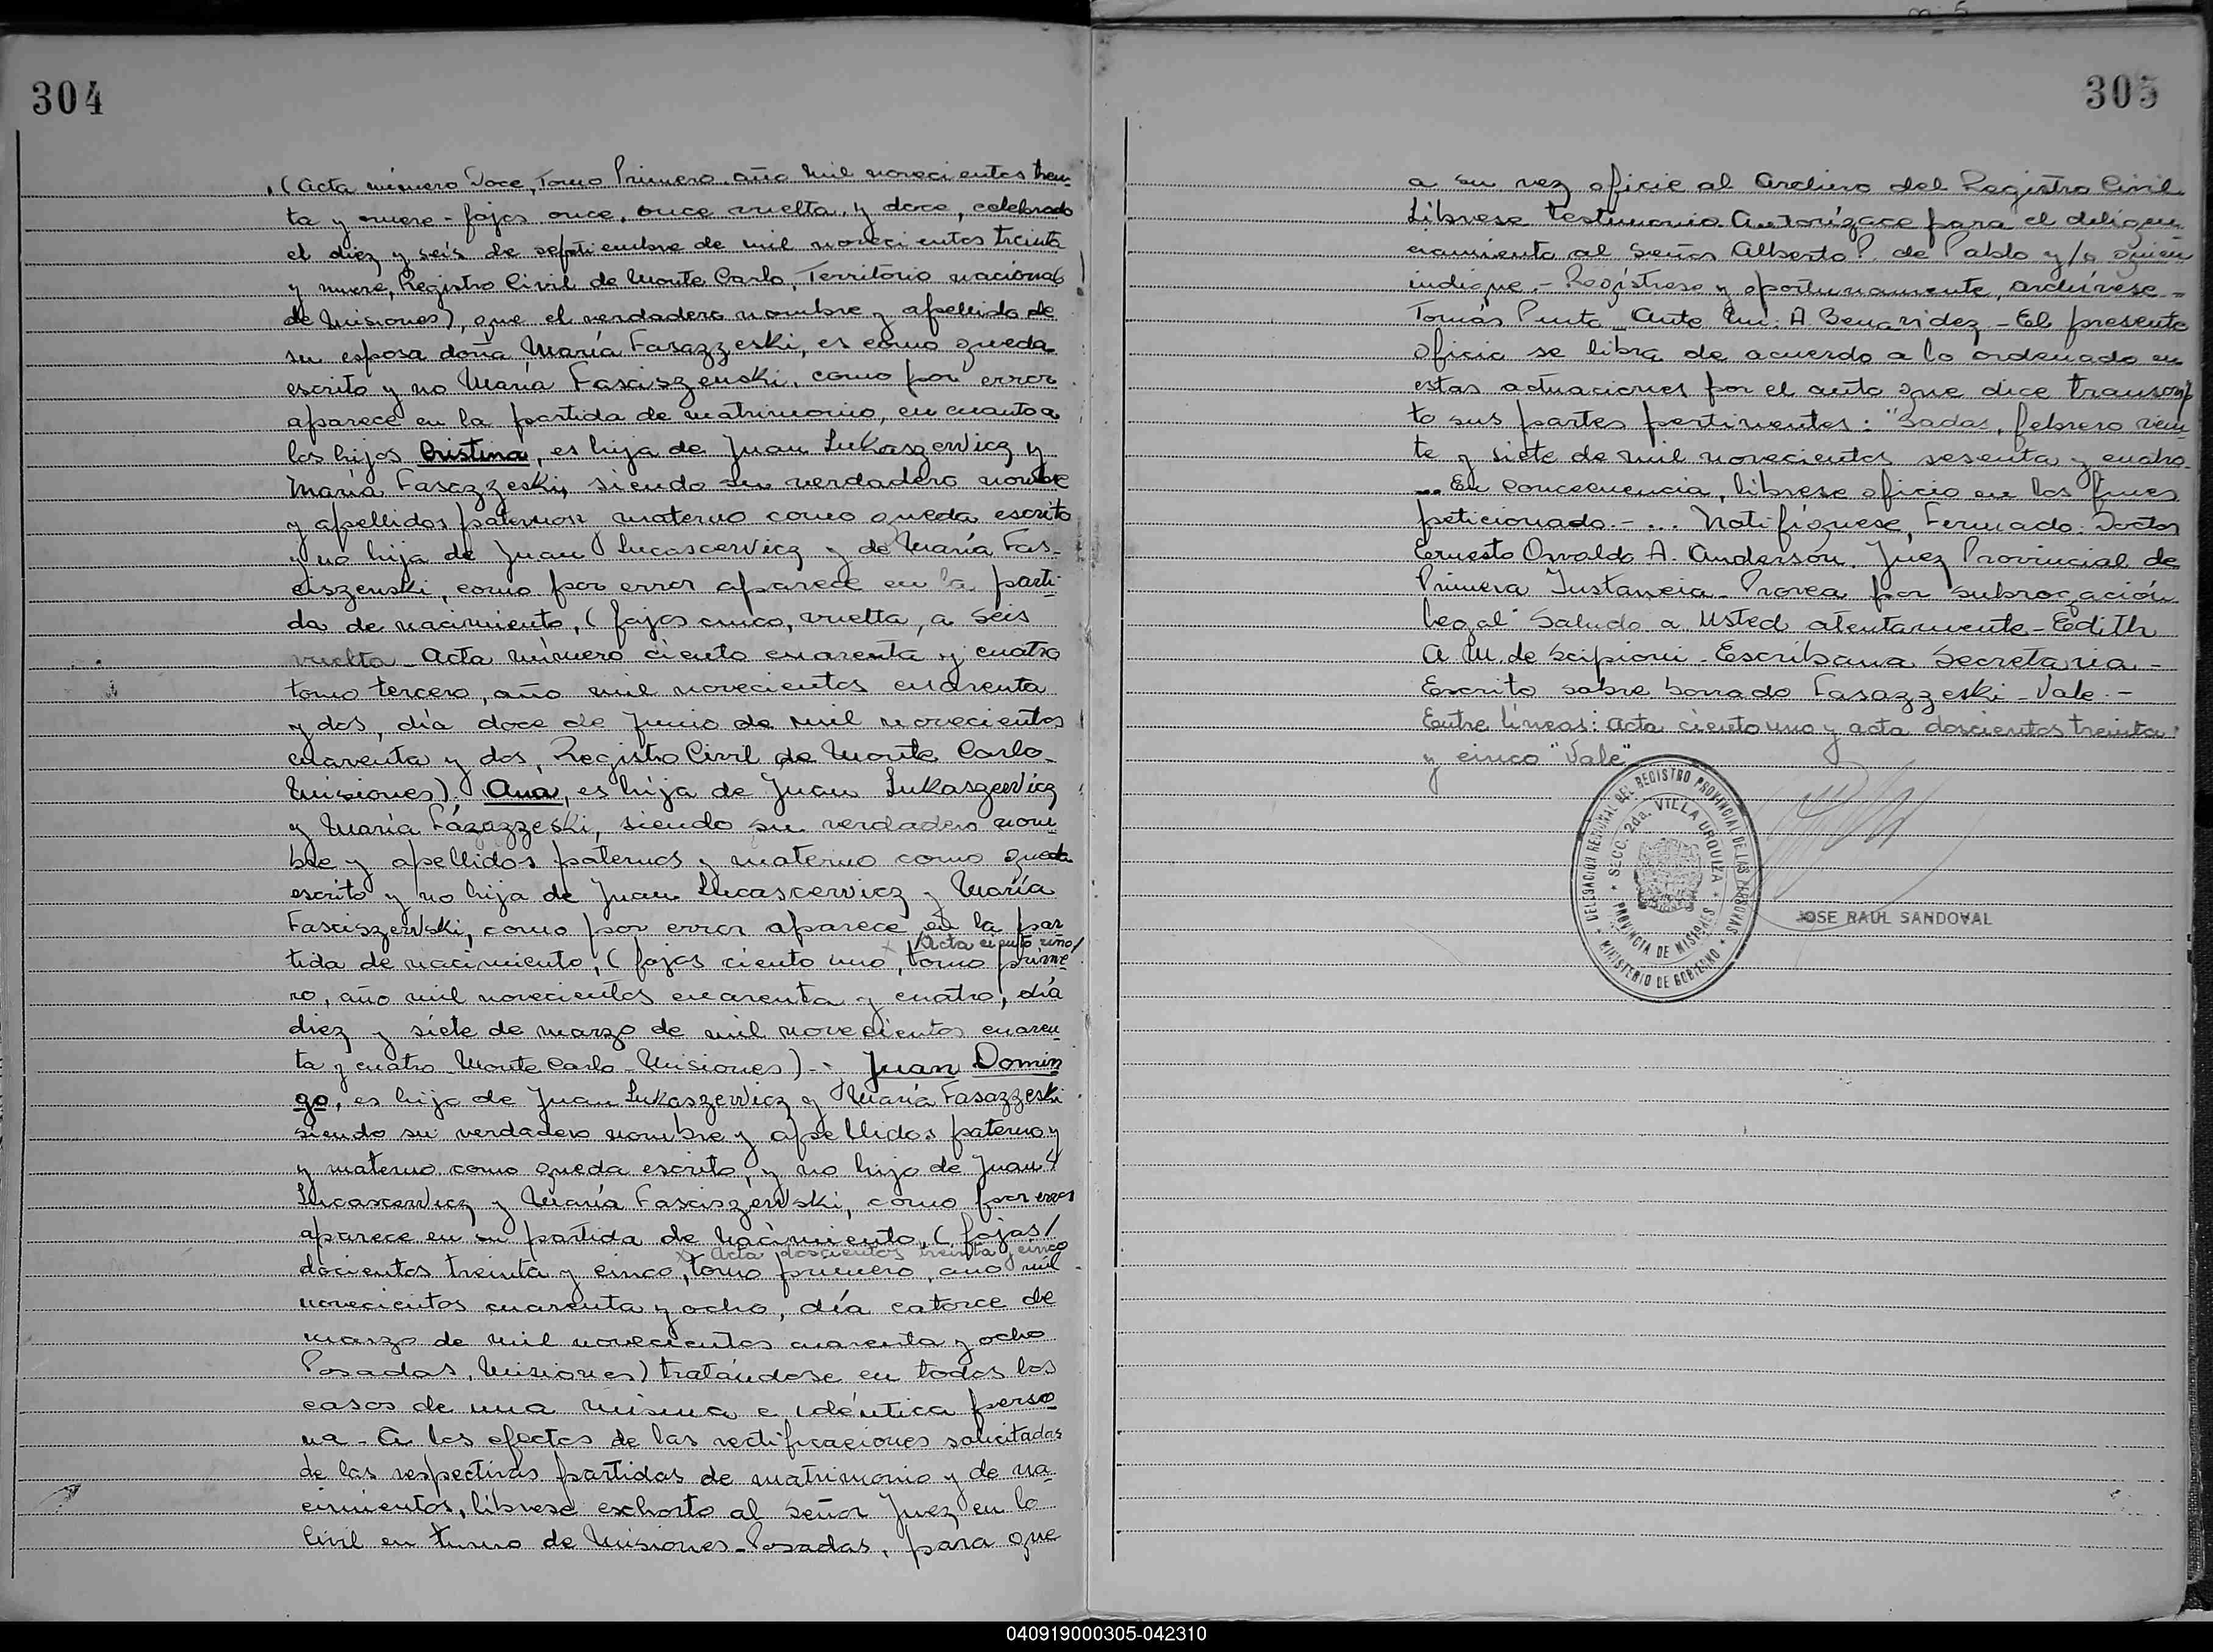 304
(Acta número Doce, Tomo Primero, año mil novecientos trein-
ta y nueve - fojas once, once vuelta, y doce, celebrado
el diez y seis de septiembre de mil novecientos treinta
y nueve, Registro Civil de Monte Carlo, Territorio nacional
de Misiones), que el verdadero nombre y apellido de
su esposa doña María Fasazzeski, es como queda
escrito y no María Fasciszenski, como por error
aparece en la partida de matrimonio, en cuanto a
los hijos Cristina, es hija de Juan Lukaszewicz y
María Fasazzeski, siendo su verdadero nombre
y apellidos paterno y materno como queda escrito
y no hija de Juan Lucascewicz y de María Fas-
ciszenski, como por error aparece en la parti-
da de nacimiento, (fojas cinco, vuelta, a seis
vuelta - Acta número ciento cuarenta y cuatro
tomo tercero, año mil novecientos cuarenta
y dos, día doce de Junio de mil novecientos
cuarenta y dos, Registro Civil de Monte Carlo-
Misiones). Ana, es hija de Juan Lukaszewicz
y María Fazazzeski, siendo su verdadero nom-
bre y apellidos paternos y materno como queda
escrito y no hija de Juan Lucascewicz y María
Fasciszewski, como por error aparece en la par
x Acta ciento uno/
tida de nacimiento, (fojas ciento uno, tomo prime
ro, año mil novecientos cuarenta y cuatro, día
diez y siete de marzo de mil novecientos cuaren
ta y cuatro - Monte Carlo - Misiones) - Juan Domin
go, es hijo de Juan Lukaszewicz y María Fasazzeski
siendo su verdadero nombre y apellidos paterno y
y materno como queda escrito, y no hijo de Juan
Lucascewicz y María Fasciszewski, como por error
aparece en su partida de nacimiento, (fojas/
x Acta doscientos treinta y cinco
docientos treinta y cinco, tomo primero, año mil
novecientos cuarenta y ocho, día catorce de
marzo de mil novecientos cuarenta y ocho
Posadas, Misiones) tratándose en todos los
casos de una misma e idéntica perso
na - A los efectos de las rectificaciones solicitadas
de las respectivas partidas de matrimonio y de na
cimientos, líbrese exhorto al señor Juez en lo
Civil en turno de Misiones - Posadas, para que
305
a su vez oficie al Archivo del Registro Civil
Líbrese testimonio. Autorízace para el diligen
ciamiento al Señor Alberto P. de Pablo y/o quien
indique.- Regístrese y oportunamente, archívese -
Tomás Punta - Ante Mí: A. Benavidez - El presente
oficio se libra de acuerdo a lo ordenado en
estas actuaciones por el auto que dice transcrip
to sus partes pertinentes: "Sadas, febrero vein
te y siete de mil novecientos sesenta y cuatro.
... En Concecuencia, líbrese oficio en los fines
peticionado.- ... Notifíquese, Fermado: Doctor
Ernesto Osvaldo A. Anderson. Juez Provincial de
Primera Instancia - Provea por subrogación
legal" Saludo a Usted atentamente - Edith
A. M. de Scipioni - Escribana Secretaria -
Escrito sobre borrado Fasazzeski - Vale. -
Entre líneas: Acta ciento uno y acta doscientos treinta
y cinco "Vale"
DELEGACIÓN REGIONAL DEL REGISTRO PROVINCIAL DE LAS PERSONAS
SECC. 2da. VILLA URQUIZA
PROVINCIA DE MISIONES
MINISTERIO DE GOBIERNO
JOSE RAUL SANDOVAL
040919000305-042310